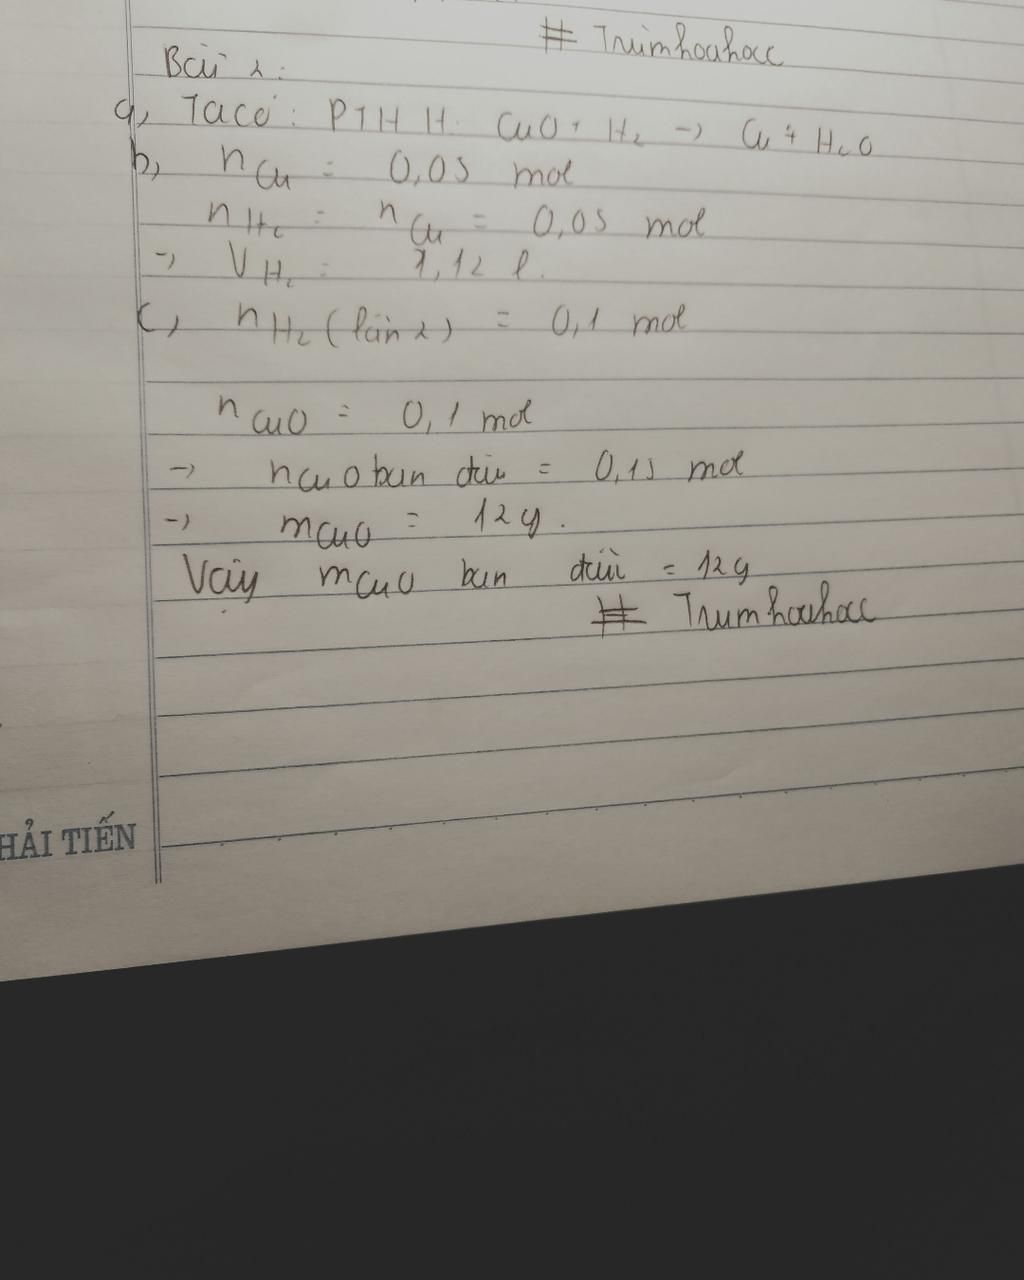 # Trumhoahocc
Bài 2:
a, Ta có: PTHH: CuO + H₂ -> Cu + H₂O
b, nCu = 0,05 mol
nH₂ = nCu = 0,05 mol
-> VH₂ = 1,12 l.
c, nH₂ (lần 2) = 0,1 mol
nCuO = 0,1 mol
-> nCuO ban đầu = 0,15 mol
-> mCuO = 12g.
Vậy mCuO ban đầu = 12g
# Trumhoahocc
HẢI TIẾN